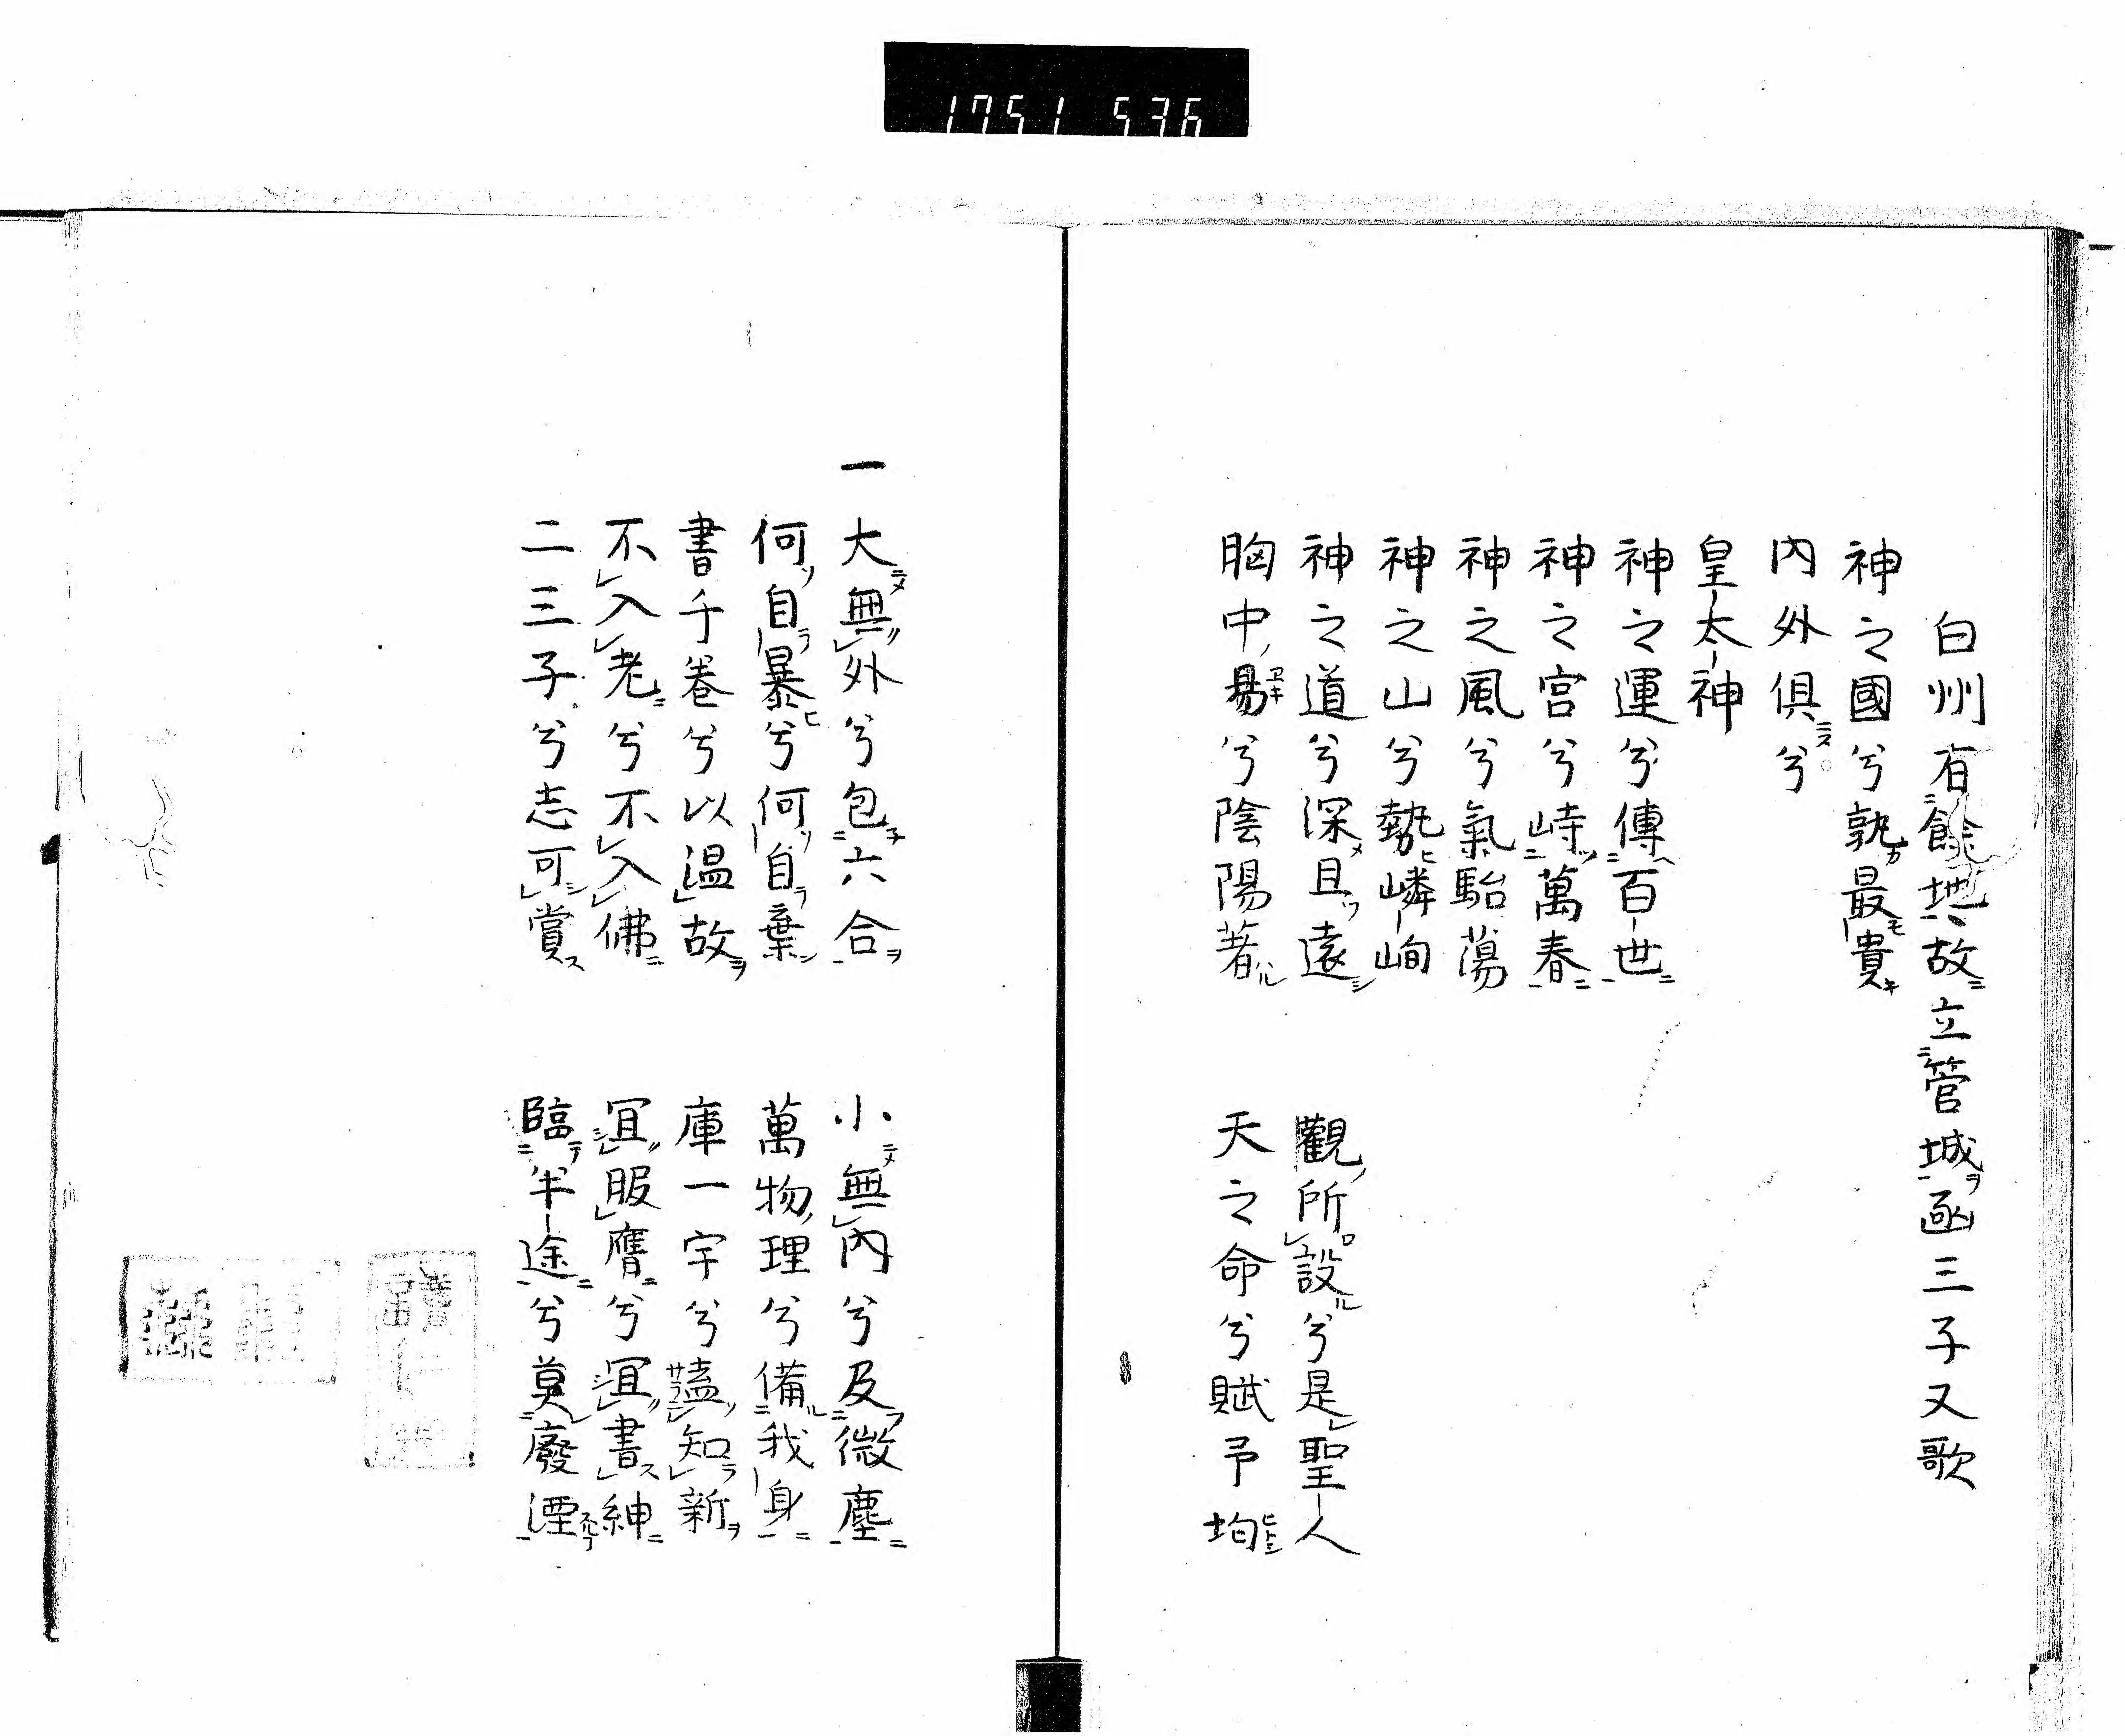 1751 536
白州有餘地故立管城函三子又歌
神之國兮孰最貴
內外俱兮
皇太神
神之運兮傳百世
神之宮兮峙萬春
神之風兮氣駘蕩
神之山兮勢嶙峋
神之道兮深且遠　觀所設兮是聖人
胸中易兮陰陽著　天之命兮賦予均
一　大無外兮包六合　小無內兮及微塵
何自暴兮何自棄　萬物理兮備我身
書千卷兮以温故　庫一宇兮盍知新
不入老兮不入佛　宜服膺兮宜書紳
二三子兮志可賞　臨半途兮莫廢湮